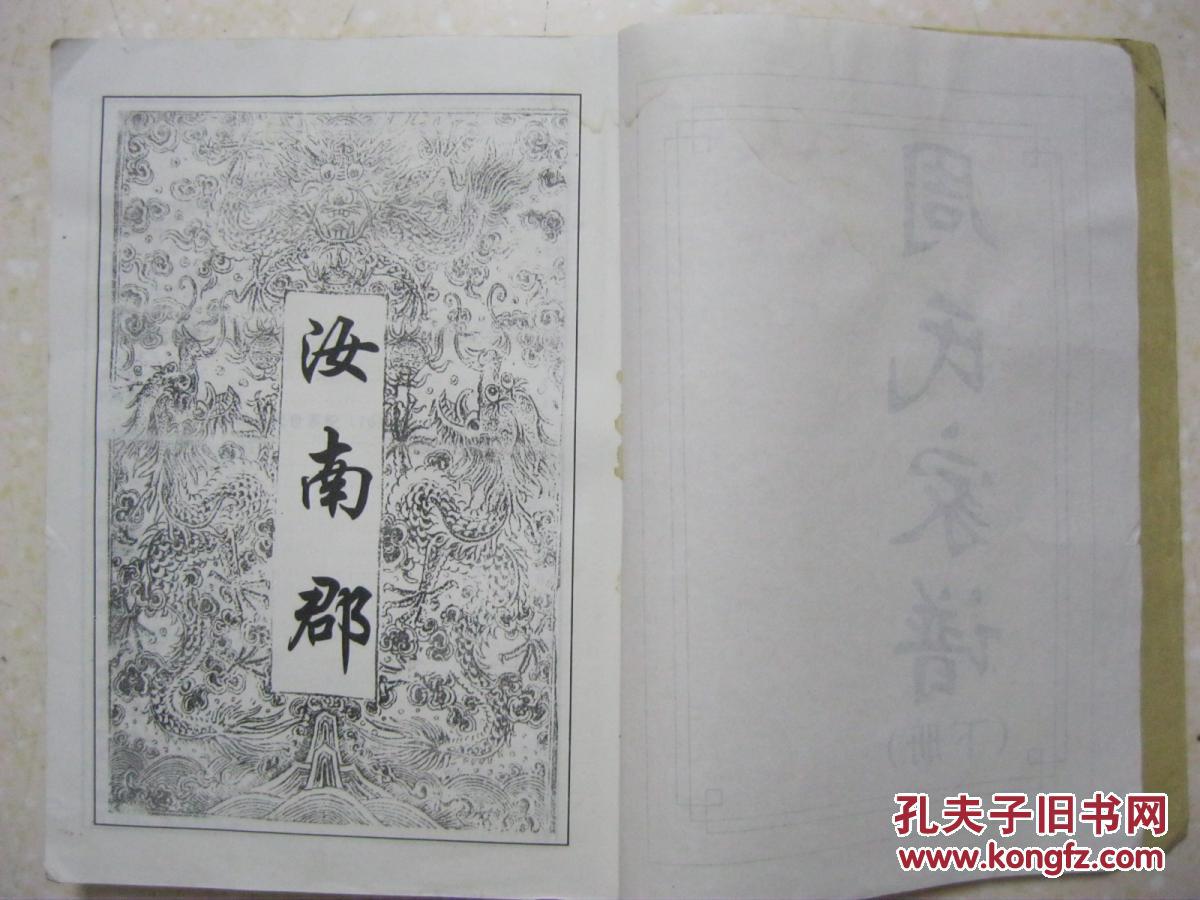 汝南郡
周氏家谱
（下册）
孔夫子旧书网
www.kongfz.com